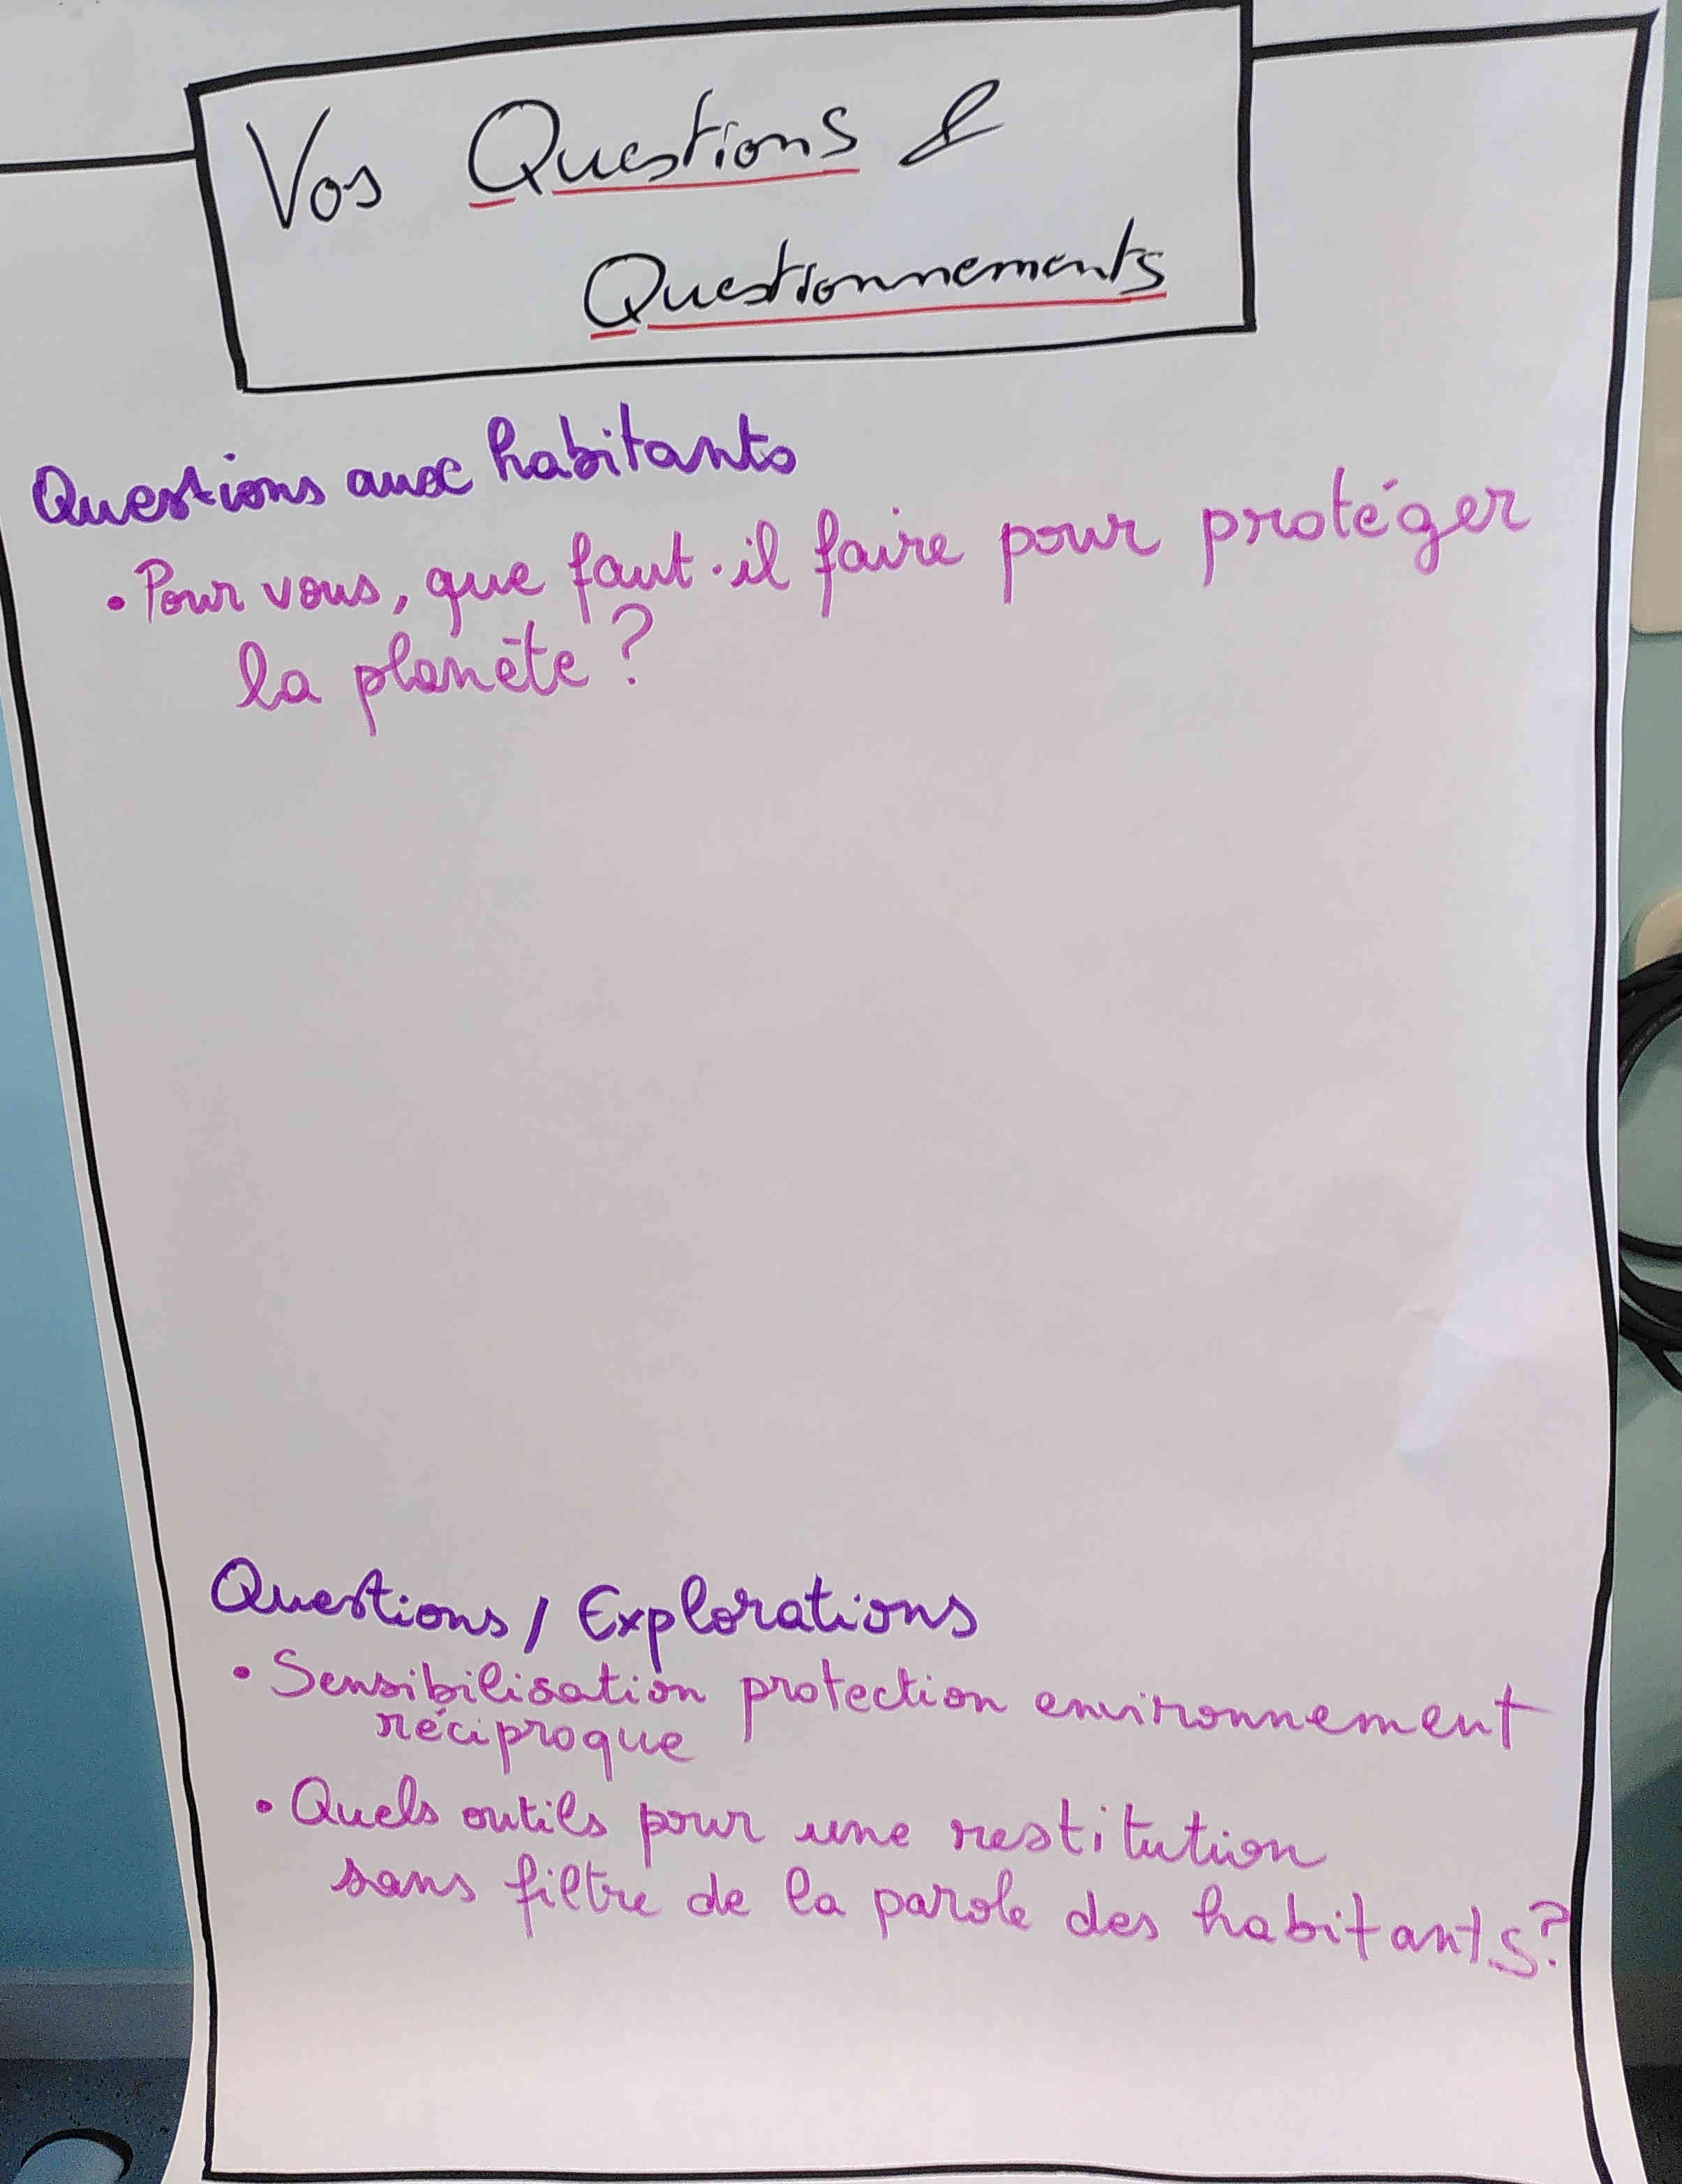 Vos Questions &
Questionnements
Questions aux habitants
• Pour vous, que faut-il faire pour protéger
la planète ?
Questions / Explorations
• Sensibilisation protection environnement
réciproque
• Quels outils pour une restitution
sans filtre de la parole des habitants ?